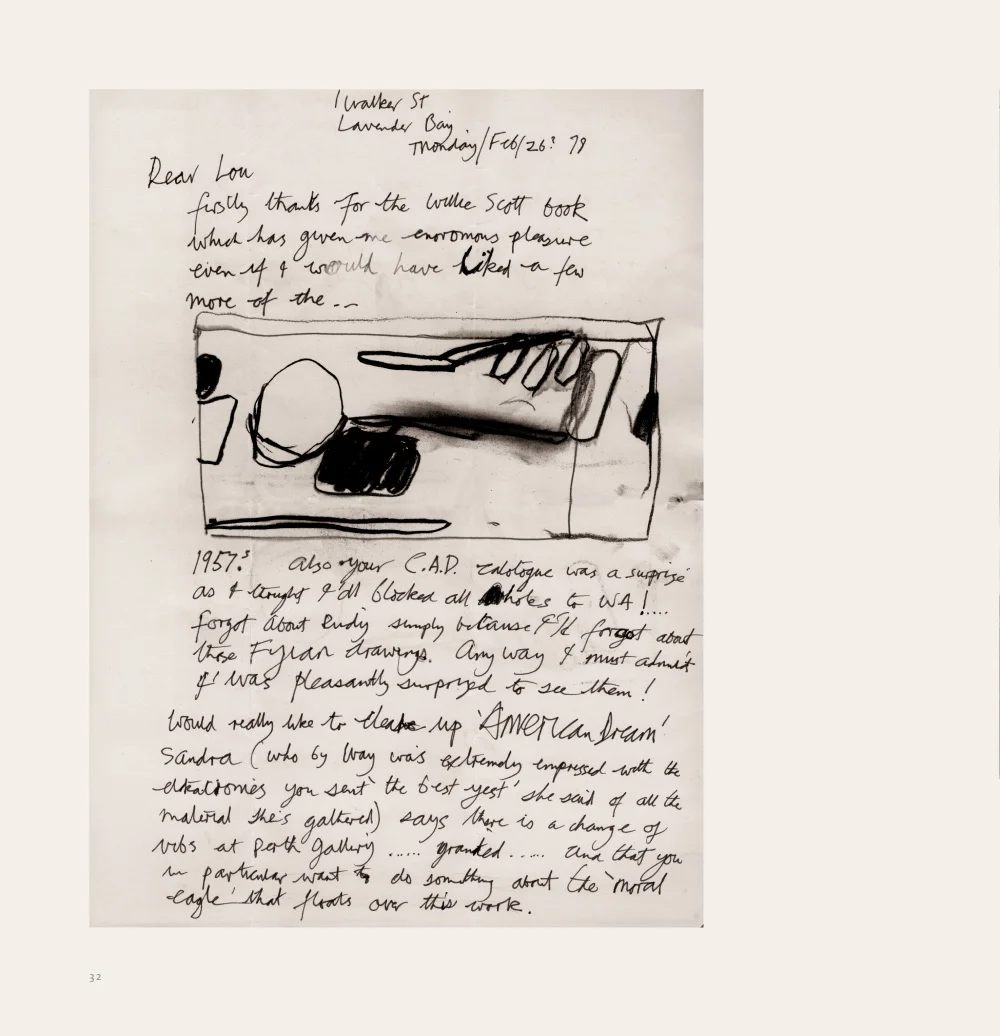 1 Walker St
Lavender Bay
Monday/Feb/26: 79
Dear Lou
firstly thanks for the Willie Scott book
which has given me enoromous pleasure
even if I would have liked a few
more of the --
1957's Also your C.A.D. catologue was a surprise
as I thought I'd blocked all holes to WA! ....
forgot about Rudy simply because I'd forgot about
those Fijian drawings. Anyway I must admit
I was pleasantly surprized to see them!
Would really like to up 'American Dream'
Sandra (who by Way was extremely empressed with the
you sent 'the best yest' she said of all the
material she's gathered) says there is a change of
vibs at Perth Gallery ...... granted ...... and that you
in particular want to do something about the 'moral
eagle' that floats over this work.
32